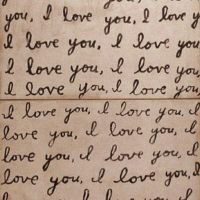 you, I love you, I
love you, I love you,
I love you, I love
I love you, I love
I love you, I love you,
I love you, I love you, I
love you, I love you, I
love you, I love you, I
love you, I love you, I
I love you, I love